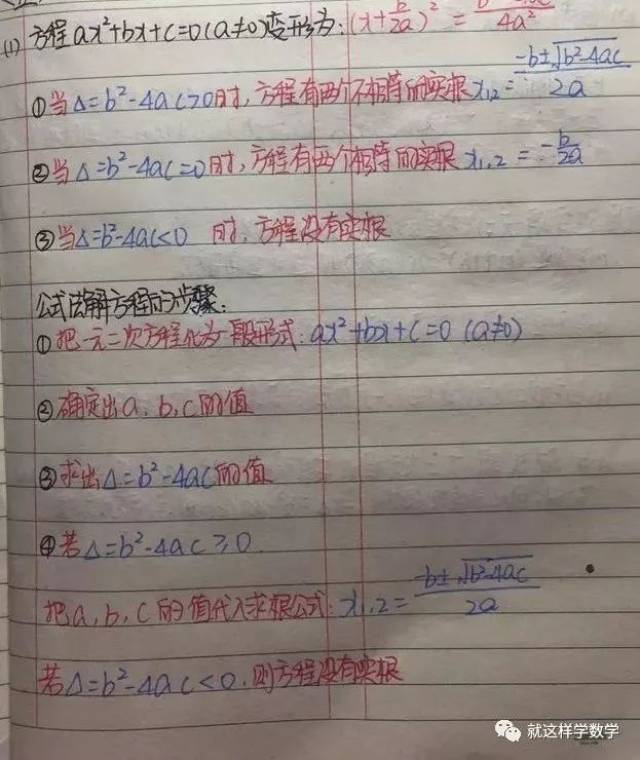 (1) 方程ax²+bx+c=0(a≠0)变形为:(x+b/2a)²=b²-4ac/4a²
①当Δ=b²-4ac>0时,方程有两个不相等的实根x₁,₂=-b±√b²-4ac/2a
②当Δ=b²-4ac=0时,方程有两个相等的实根x₁,₂=-b/2a
③当Δ=b²-4ac<0 时,方程没有实根
公式法解方程的步骤:
①把一元二次方程化为一般形式:ax²+bx+c=0 (a≠0)
②确定出a、b、c的值
③求出Δ=b²-4ac的值
④若Δ=b²-4ac≥0
把a,b,c的值代入求根公式:x₁,₂=-b±√b²-4ac/2a
若Δ=b²-4ac<0.则方程没有实根
就这样学数学